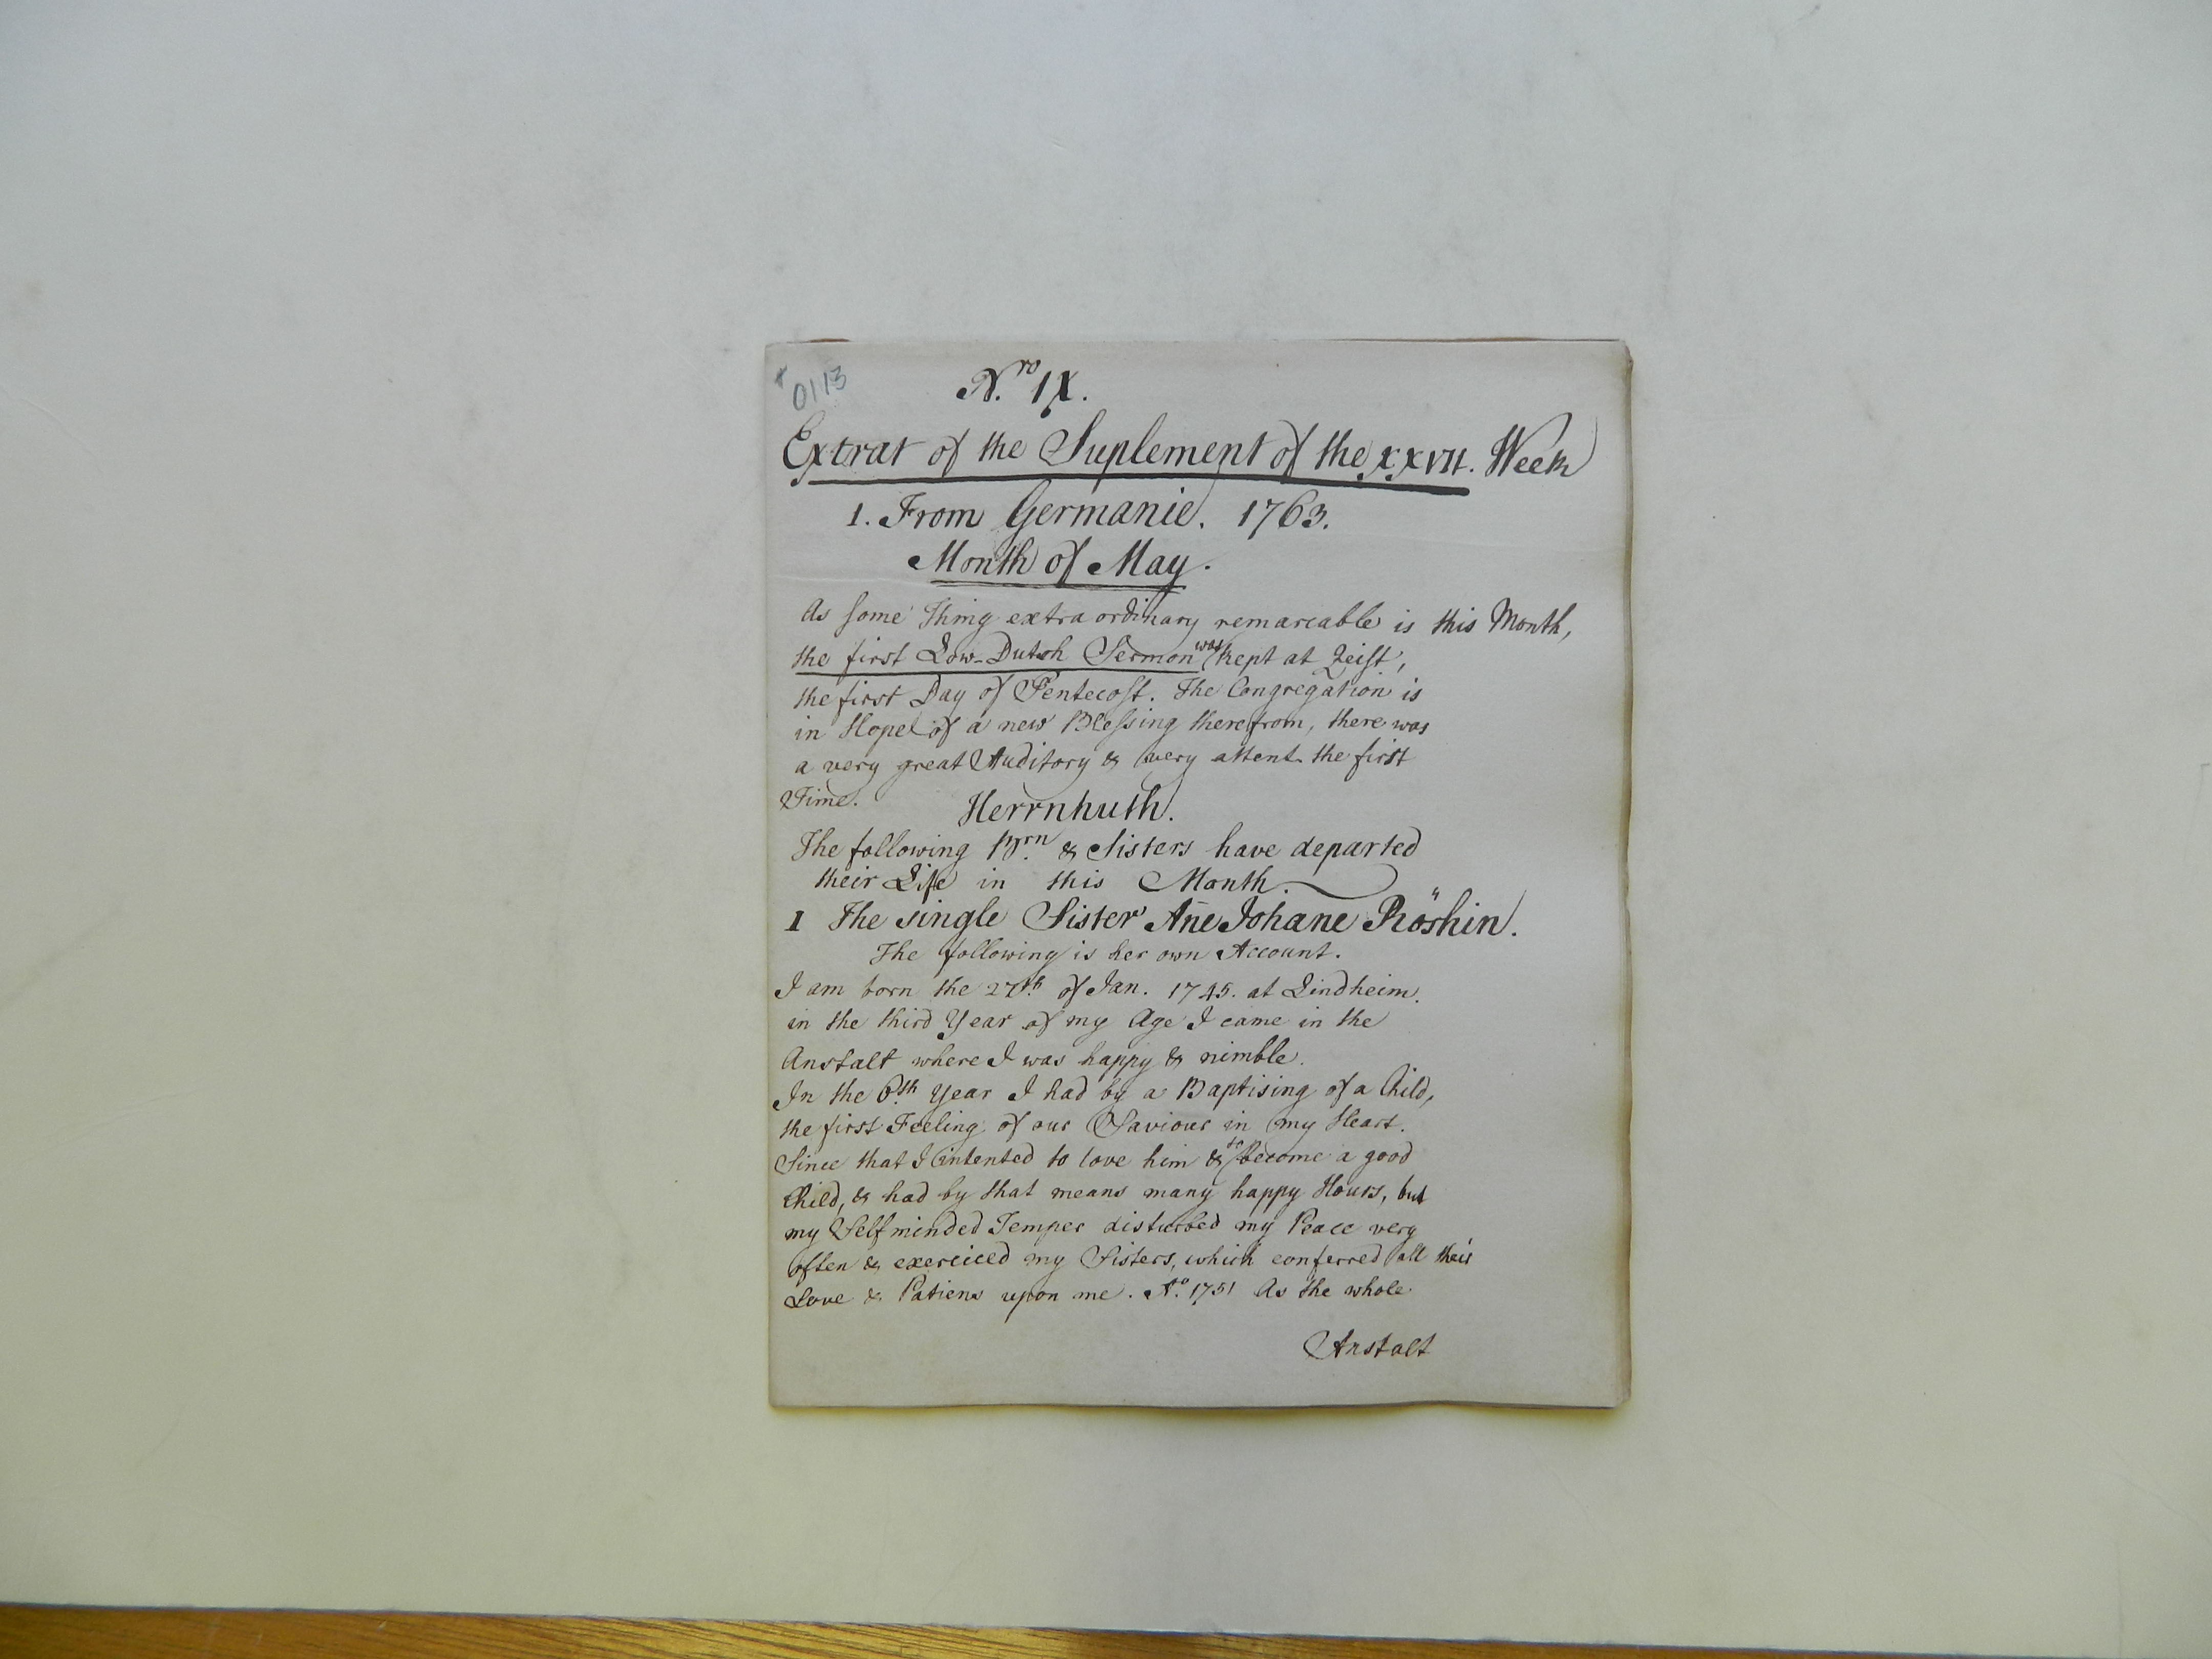 0113
N.ro IX.
Extrat of the Suplement of the XXVII. Week
1. From Germanie. 1763.
Month of May.
As some Thing extra ordinary remarcable is this Month,
the first Low-Dutch Sermon was kept at Zeist,
the first Day of Pentecost. The Congregation is
in Hope of a new Blessing therefrom, there was
a very great Auditory & very attent the first
Time.
Herrnhuth.
The following Brn. & Sisters have departed
their Life in this Month.
1 The single Sister Añe Johane Röshin.
The following is her own Account.
I am born the 27th of Jan. 1745. at Lindheim.
in the third Year of my Age I came in the
Anstalt where I was happy & nimble.
In the 6th Year I had by a Baptising of a Child,
the first Feeling of our Saviour in my Heart.
Since that I intented to love him & to become a good
Child, & had by that means many happy Hours, but
my Selfminded Temper disturbed my Peace very
often & exerciced my Sisters, which conferred all their
Love & Patiens upon me. Ao. 1751 As the whole
Anstalt